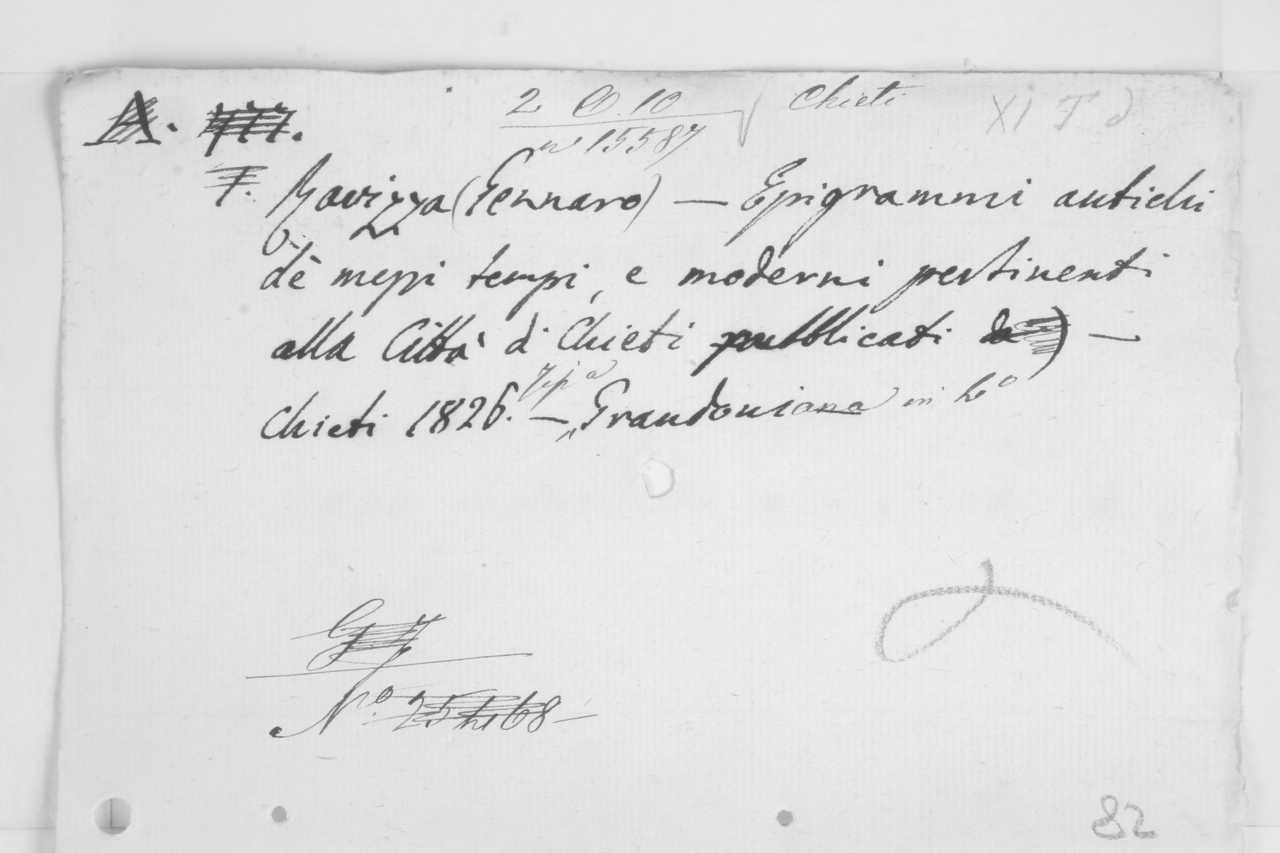 2 O. 10 Chieti XI F d
n° 15587
F. Ravizza (Gennaro) — Epigrammi antichi
de' mezzi tempi, e moderni pertinenti
alla Città di Chieti pubblicati —
Chieti 1826. Tip.a — Grandoniana in 4°
N.° 25468
82